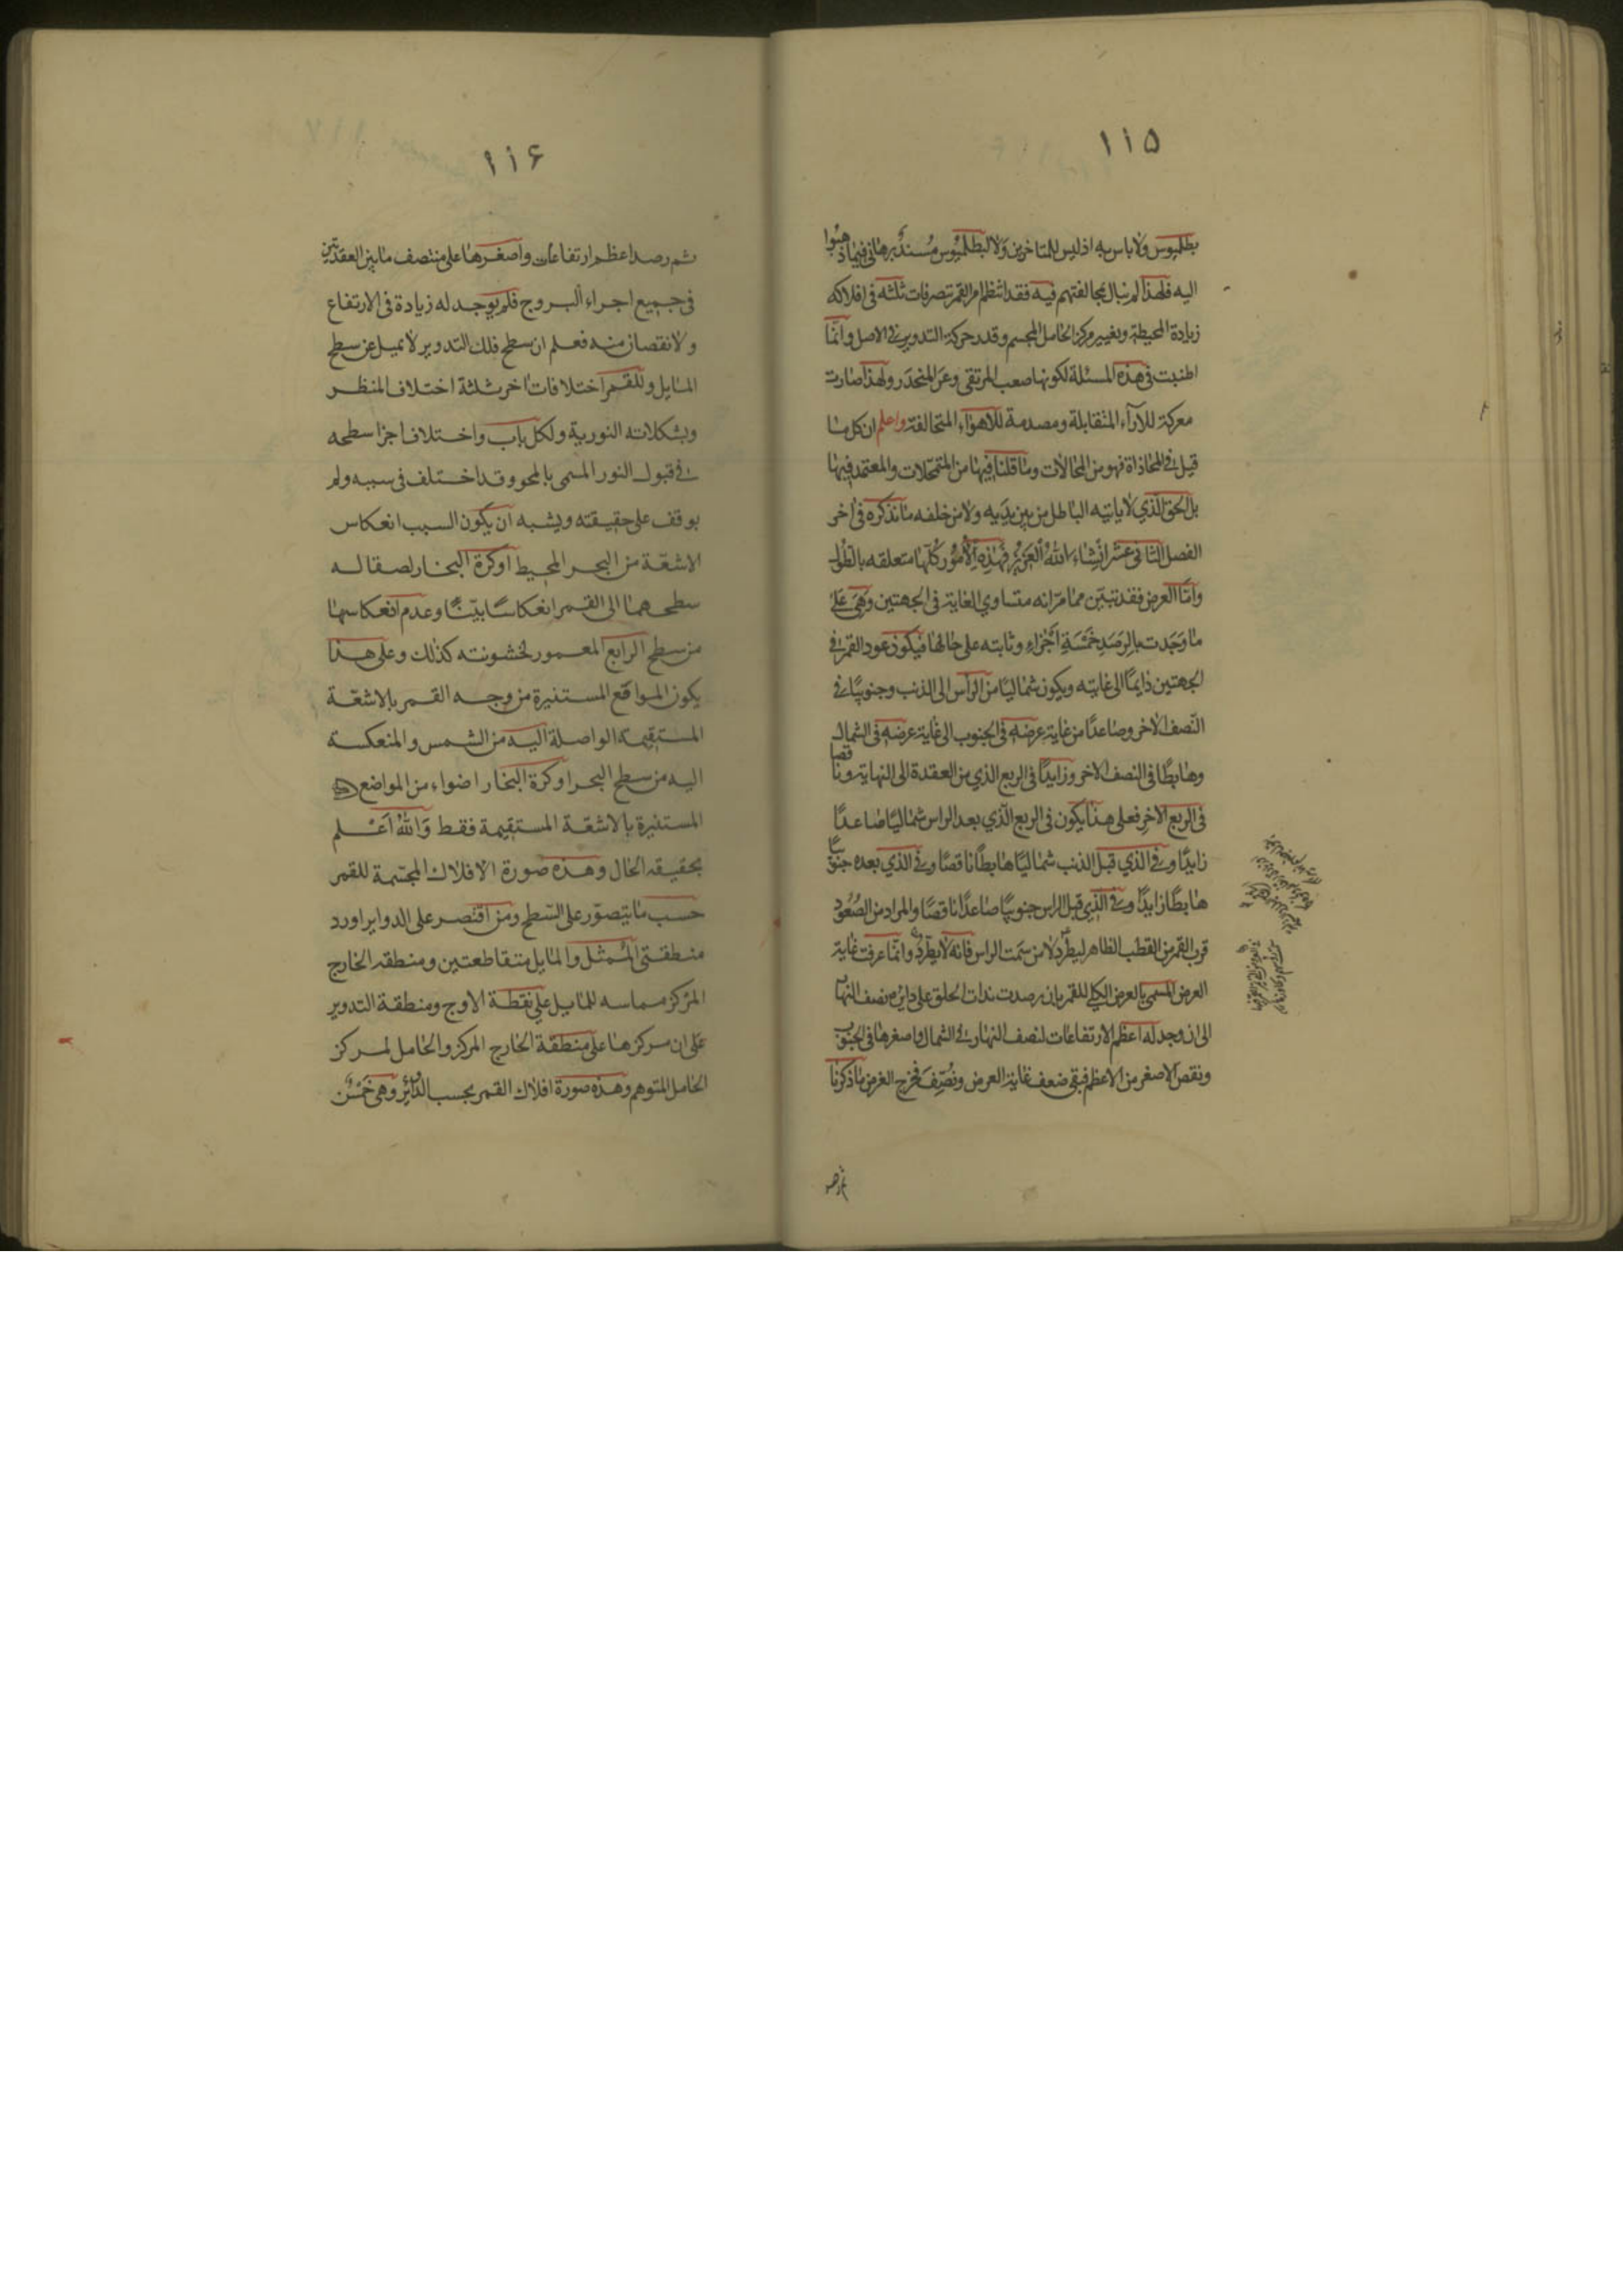 ١١۵
بطلميوس ولا باس به اذ ليس للمتاخرين ولا لبطلميوس مُستند برهاني فيما ذهبوا
اليه فلهذا لم نبال بمخالفتهم فيه فقد انتظم امر القمر بتصرفات ثلثه في افلاكه
زيادة المحيطة وتغيير مركز الحامل المجسم وقدر حركة التدوير في الاصل وانّما
اطنبت في هذه المسئلة لكونها صعب المرتقى وعر المنحدر ولهذا صارت
معركة للآراء المتقابلة ومصدمة للاهواء المتخالفة واعلم ان كل ما
قيل في المحاذاة فهو من المحالات وما قلنا فيها من المتمحّلات والمعتمد فيها
بل الحق الّذي لا ياتيه الباطل من بين يديه ولا من خلفه ما نذكره في اخر
الفصل الثاني عشر انشاء اللهُ العزيز فهٰذِه الأمُور كُلّها متعلقه بالطُول
وامّا العرض فقد تبيّن مما مرّ انه متساوي الغاية في الجهتين وهَي عَلى
ما وَجَدت بالرصَدِ خَمسَةِ أجْزاءِ وثابته على حالها فيكون عود القمر في
الجهتين دٰايمًا الى غايته ويكون شماليًا من الراس الى الذنب وجنوبيًا في
النّصف الاخر وصاعدًا من غاية عرضه في الجنوب الى غاية عرضه في الشمال
وهابطًا في النصف الاخر وزايدًا في الربع الذي من العقدة الى النهاية وناقصا
في الربع الاخر فعلى هذا يكون في الربع الّذي بعد الراس شماليًا صاعدًا
زايدًا وفي الذي قبل الذنب شماليًا هابطًا ناقصًا وفي الذي بعده جنوبيًا
هابطًا زايدًا وفي الّذي قبل الراس جنوبيًا صاعدًا ناقصًا والمراد من الصُعُود
قرب القمر من القطب الظاهر ليطّرد لا من سَمت الراس فانه لا يطّرد وانّما عرفت غاية
العرض المسمى بالعرض الكلي للقمر بان رصدت بذات الحلق على دايره نصف النهار
الى ان وجد له اعظم الارتفاعات لنصف النهار في الشمال واصغرها في الجنوب
ونقص الاصغر من الاعظم فبقى ضعف غاية العرض ونُصِّفَ فخرج الغرض ما ذكرنا
ثم رصد
١١۶
ثم رصد اعظم ارتفاعات واصغرها على منتصف ما بين العقدتين
في جميع اجراء البروج فلم يوجد له زيادة في الارتفاع
ولا نقصان منه فعلم ان سطح فلك التدوير لا يميل عن سطح
المايل وللقمر اختلافات اخر ثلثة اختلاف المنظر
وبشكلاته النورية ولكل باب واختلاف اجزا سطحه
في قبول النور المسمى بالمحو وقد اختلف في سببه ولم
يوقف على حقيقته ويشبه ان يكون السبب انعكاس
الاشعّة من البحر المحيط او كرة البخار لصقاله
سطحهما الى القمر انعكاسًا بيّنًا وعدم انعكاسها
من سطح الرابع المعمور لخشونته كذلك وعلى هذا
يكون المواقع المستنيرة من وجه القمر بالاشعّة
المستقيمة الواصلة اليه من الشمس والمنعكسة
اليه من سطح البحر او كرة البخار اضواء من المواضع
المستنيرة بالاشعّة المستقيمة فقط وَاللهُ اَعْلم
بحقيقه الحال وهذه صورة الافلاك المجسّمة للقمر
حسب ما يتصوّر على السّطح ومن اقتصر على الدواير اورد
منطقتى المُمثل والمايل متقاطعتين ومنطقه الخارج
المركز مماسه للمايل على نقطة الاوج ومنطقة التدوير
على ان مركزها على منطقة الخارج المركز والحامل لمركز
الحامل المتوهم وهذه صورة افلاك القمر بحسب الدّواير وهي خَمْس